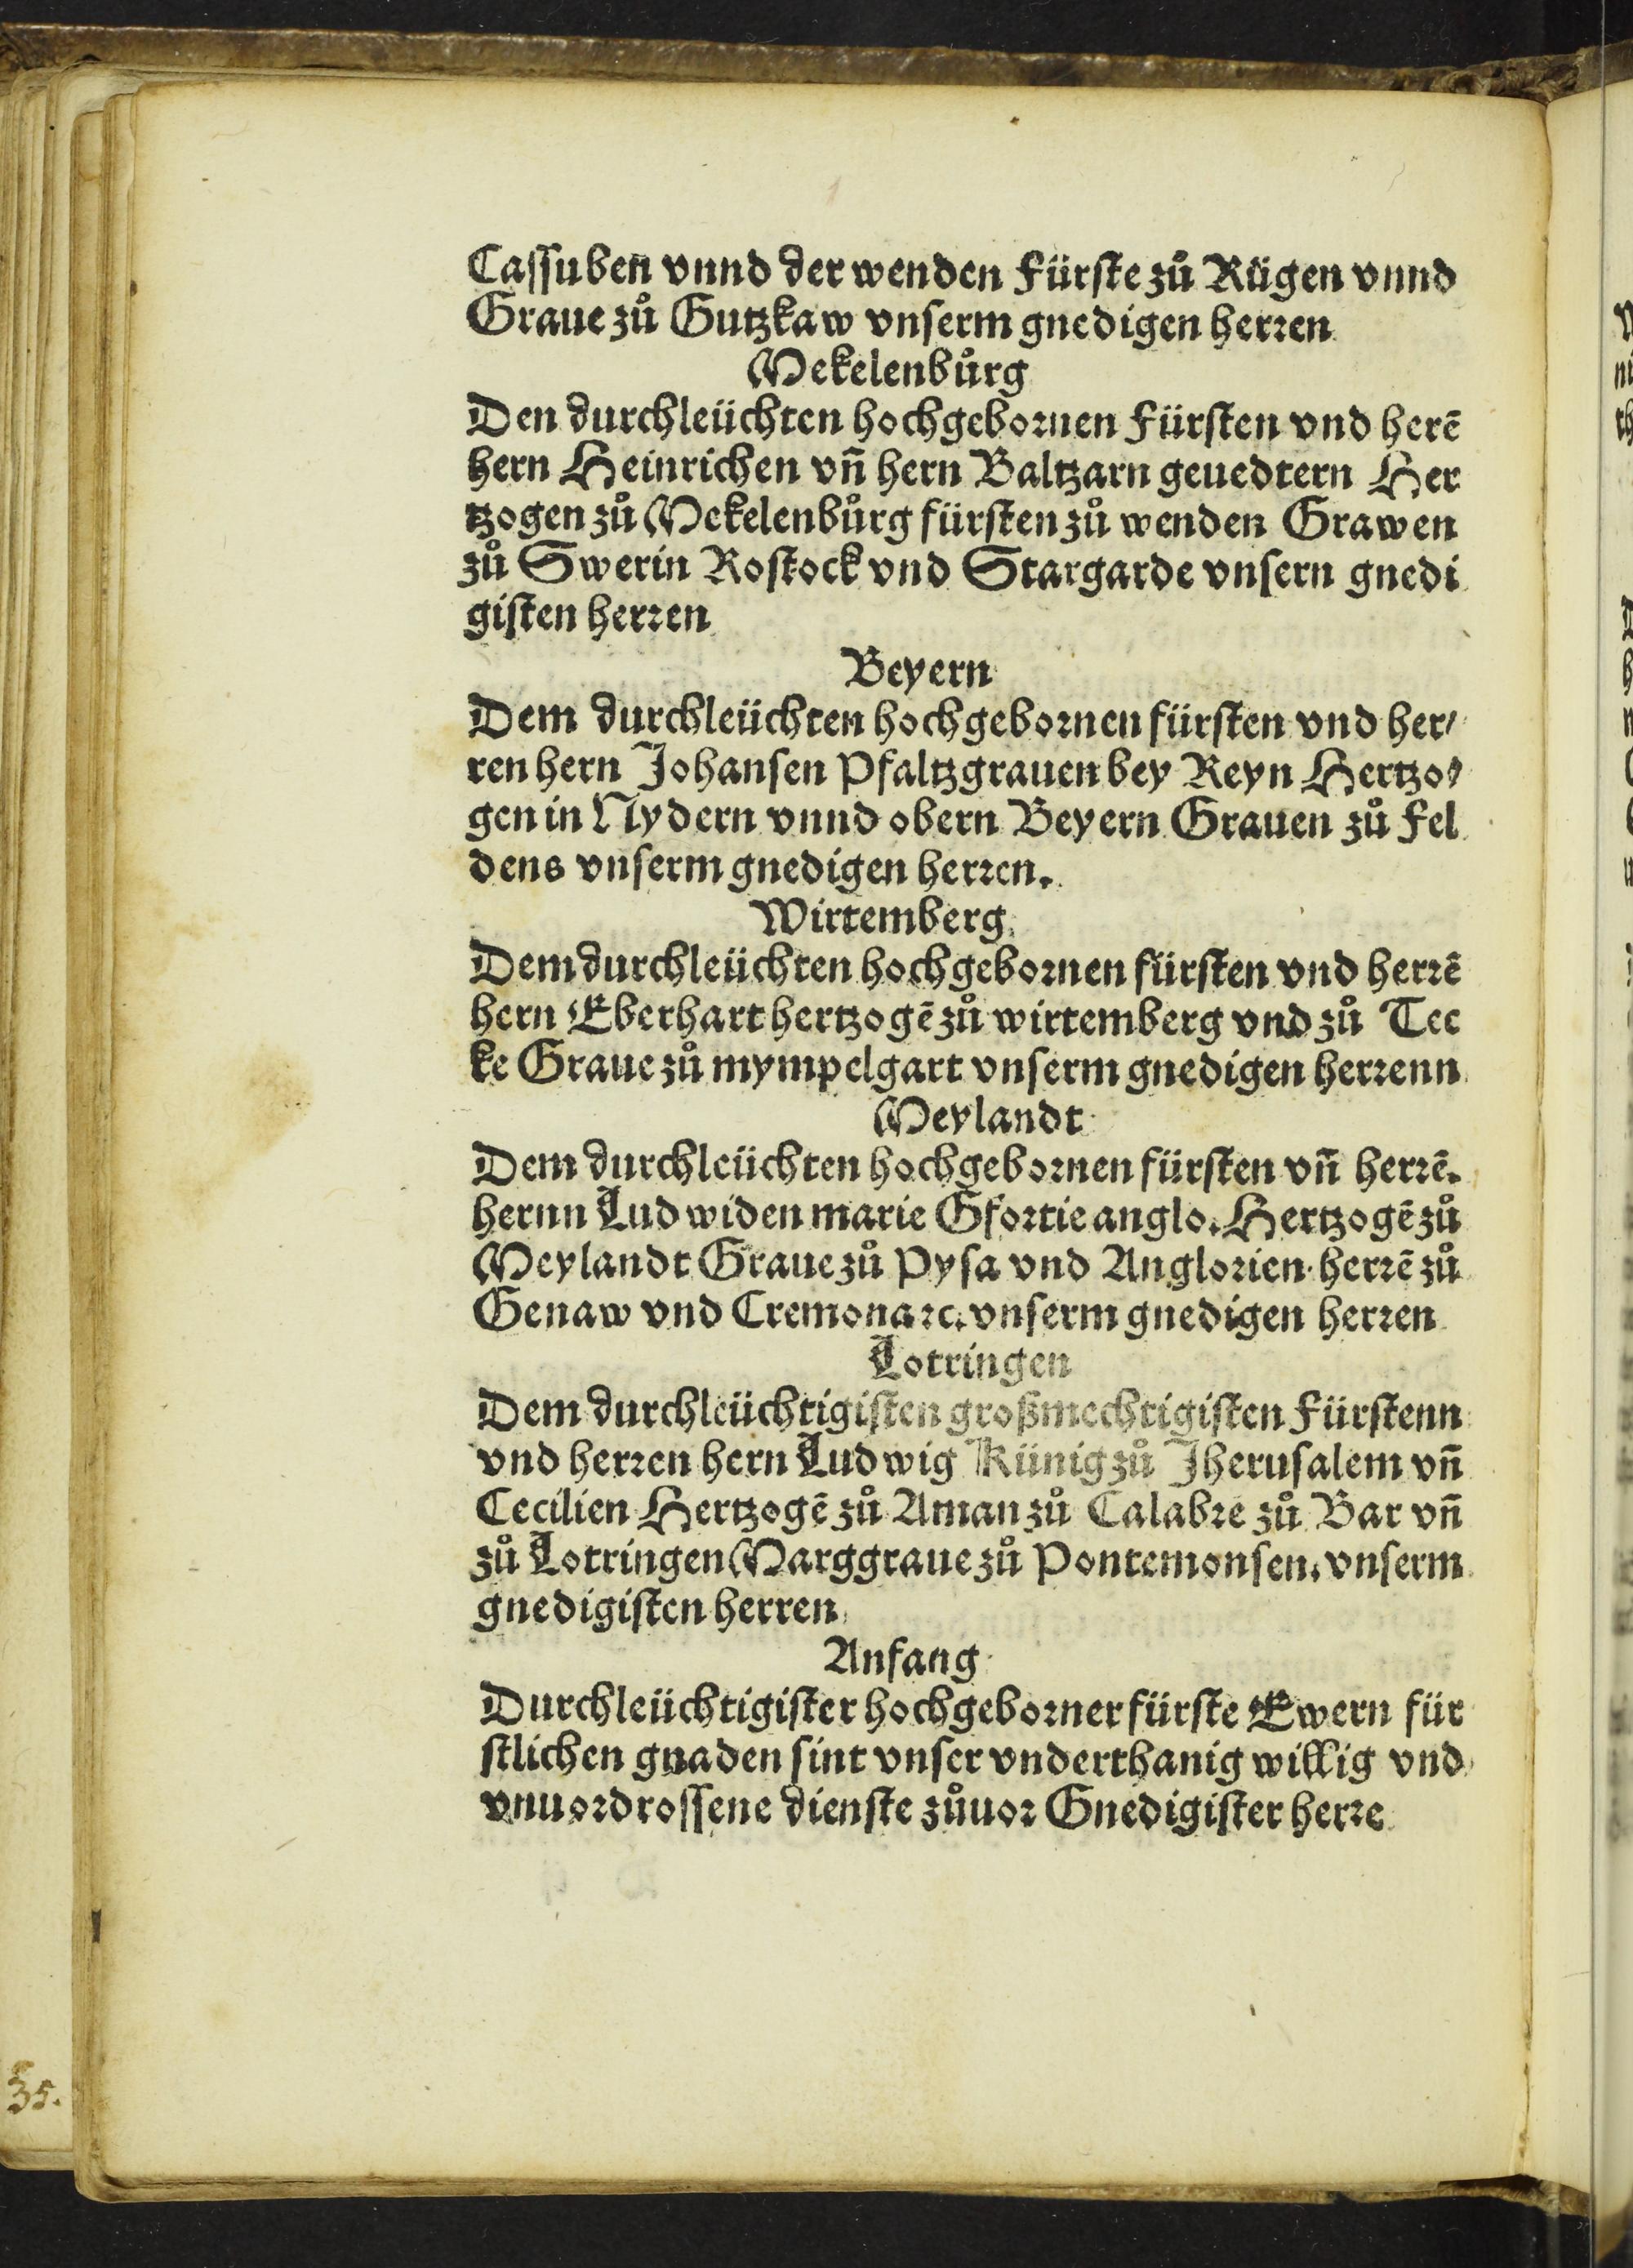 Cassuben vnnd der wenden Fürste zů Rügen vnnd
Graue zů Gutzkaw vnserm gnedigen herren
Mekelenbůrg
Den durchleüchten hochgebornen Fürsten vnd herē
hern Heinrichen vn̄ hern Baltzarn geuedtern Her
tzogen zů Mekelenbůrg fürsten zů wenden Grawen
zů Swerin Rostock vnd Stargarde vnsern gnedi
gisten herren
Beyern
Dem durchleüchten hochgebornen fürsten vnd her/
ren hern Johansen Pfaltzgrauen bey Reyn Hertzo/
gen in Nydern vnnd obern Beyern Grauen zů Fel
dens vnserm gnedigen herren.
Wirtemberg
Dem durchleüchten hochgebornen fürsten vnd herrē
hern Eberhart hertzogē zů wirtemberg vnd zů Tec
ke Graue zů mympelgart vnserm gnedigen herrenn
Meylandt
Dem durchleüchten hochgebornen fürsten vn̄ herrē.
hernn Ludwiden marie Sfortie anglo. Hertzogē zů
Meylandt Graue zů Pysa vnd Anglorien. herrē zů
Genaw vnd Cremona ꝛc. vnserm gnedigen herren
Lotringen
Dem durchleüchtigisten großmechtigisten Fürstenn
vnd herren hern Ludwig Künig zů Jherusalem vn̄
Cecilien Hertzogē zů Aman zů Calabre zů Bar vn̄
zů Lotringen Marggraue zů Pontemonsen. vnserm
gnedigisten herren
Anfang
Durchleüchtigister hochgeborner fürste Ewern für
stlichen gnaden sint vnser vnderthanig willig vnd
vnuordrossene dienste zůuor Gnedigister herre
35.